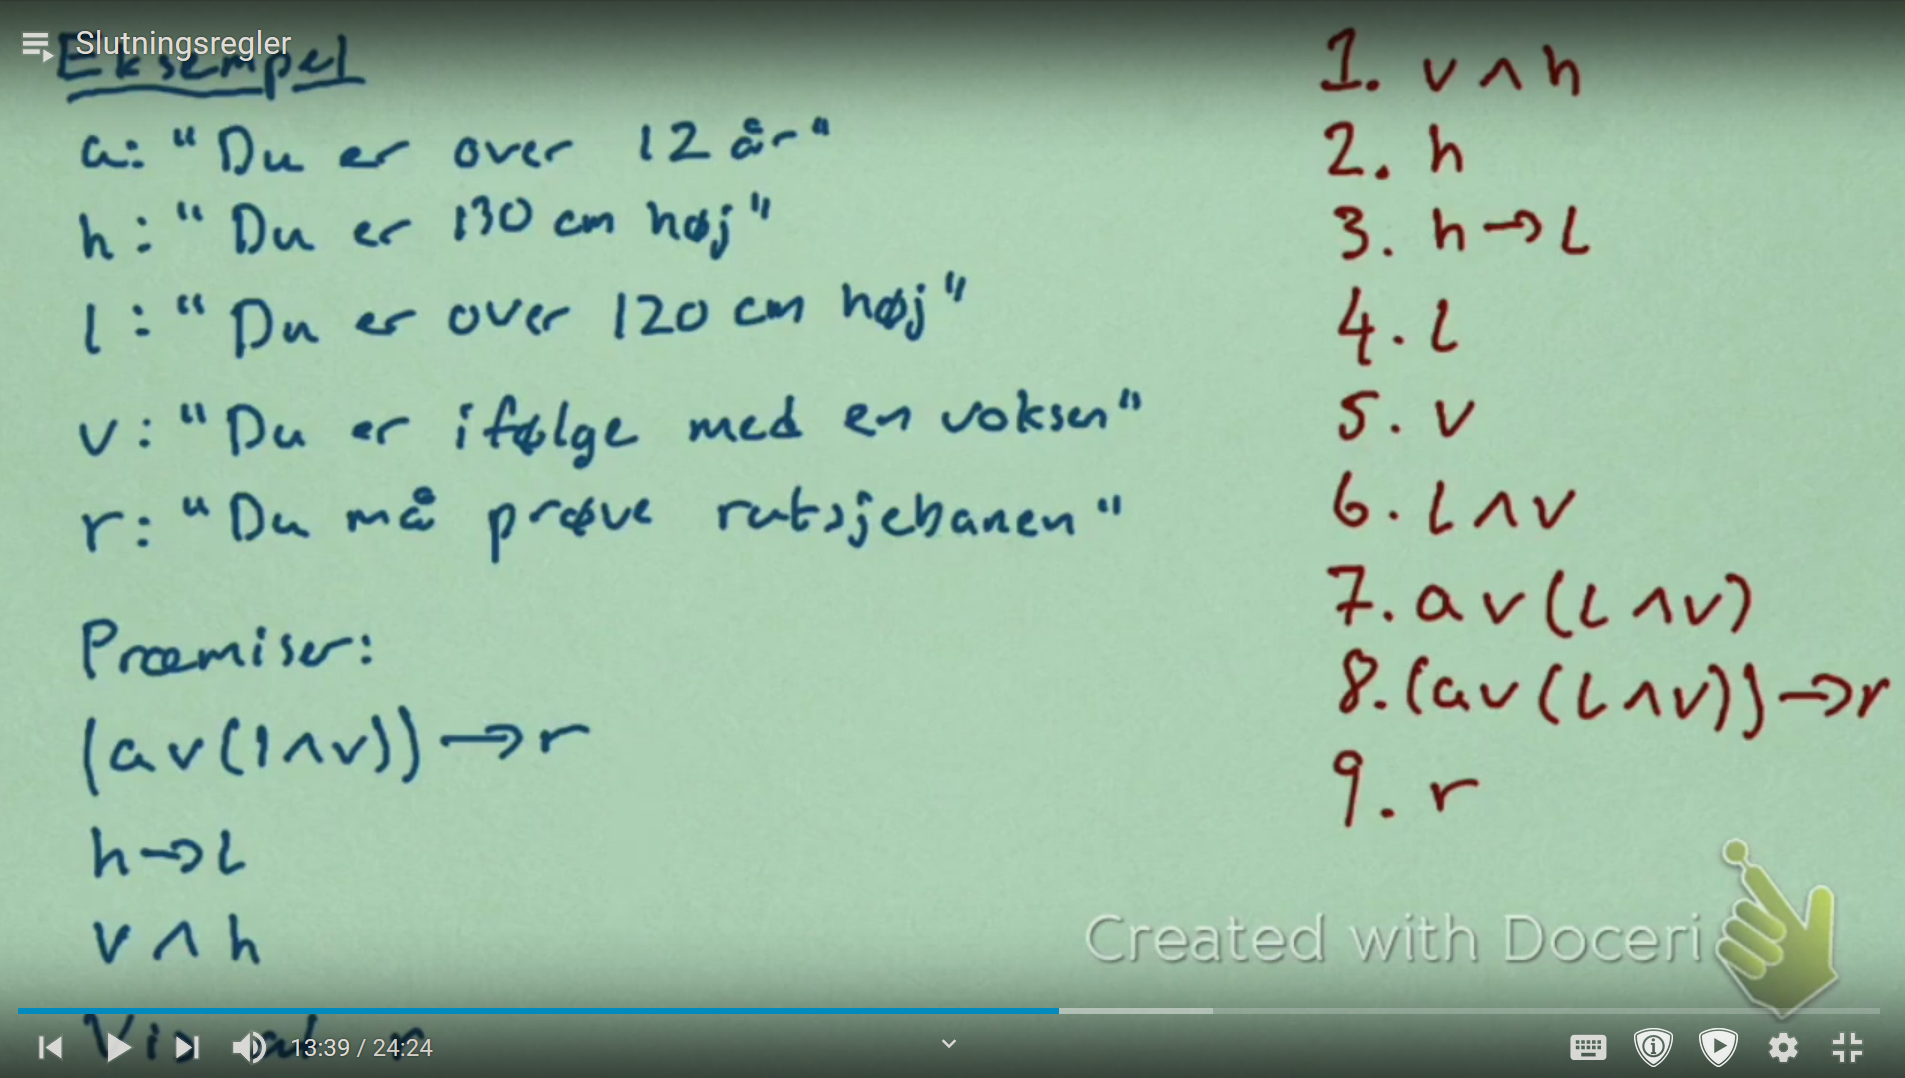 Slutningsregler
Eksempel
a: "Du er over 12 år"
h: "Du er 130 cm høj"
l: "Du er over 120 cm høj"
v: "Du er ifølge med en voksen"
r: "Du må prøve rutsjebanen"
Præmiser:
(a ∨ (l ∧ v)) → r
h → l
v ∧ h
1. v ∧ h
2. h
3. h → l
4. l
5. v
6. l ∧ v
7. a ∨ (l ∧ v)
8. (a ∨ (l ∧ v)) → r
9. r
Created with Doceri
13:39 / 24:24